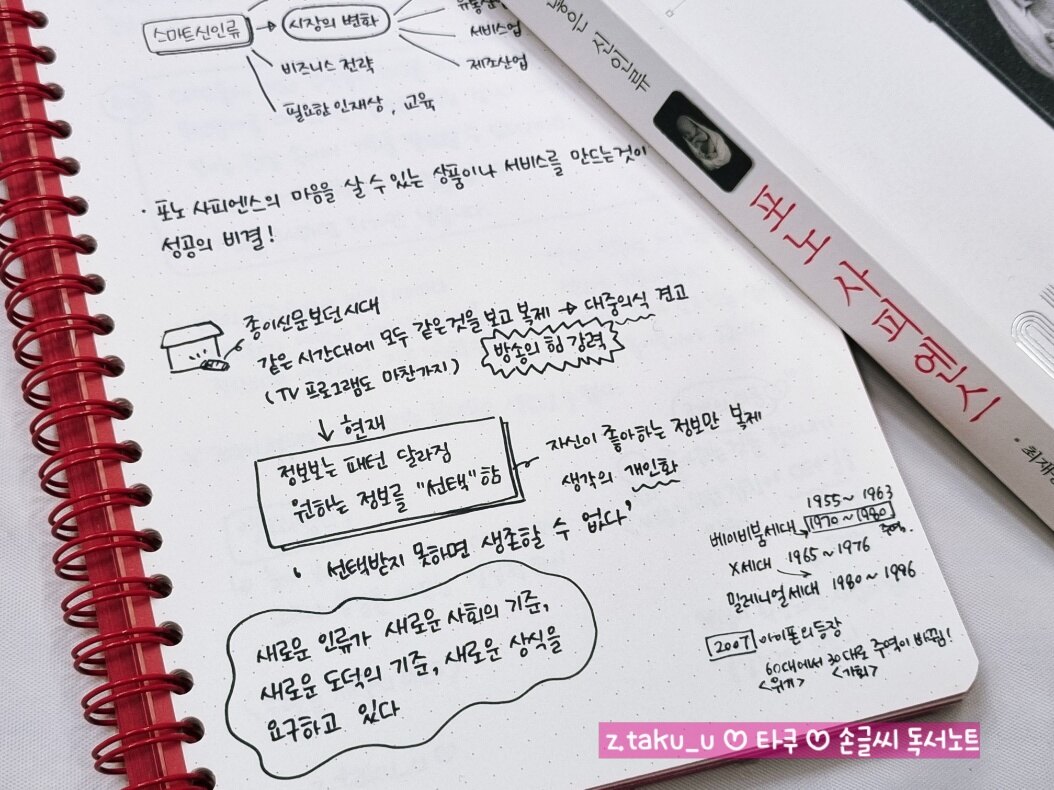 스마트신인류 → 시장의 변화
서비스업
제조산업
비즈니스 전략
필요한 인재상, 교육
· 포노 사피엔스의 마음을 살 수 있는 상품이나 서비스를 만드는것이
성공의 비결!
종이신문보던시대
같은 시간대에 모두 같은것을 보고 복제 → 대중의식 견고
(TV 프로그램도 마찬가지)
방송의 힘 강력
↓ 현재
정보보는 패턴 달라짐
원하는 정보를 "선택"함
자신이 좋아하는 정보만 복제
생각의 개인화
' 선택받지 못하면 생존할 수 없다'
새로운 인류가 새로운 사회의 기준,
새로운 도덕의 기준, 새로운 상식을
요구하고 있다
1955~1963
베이비붐세대 → 1970~1980 주역.
X세대 1965~1976
밀레니얼세대 1980~1996
2007 아이폰의등장
60대에서 30대로 주역이 바뀜!
<위기> <기회>
신인류
포노 사피엔스
z.taku_u ♡ 타쿠 ♡ 손글씨 독서노트